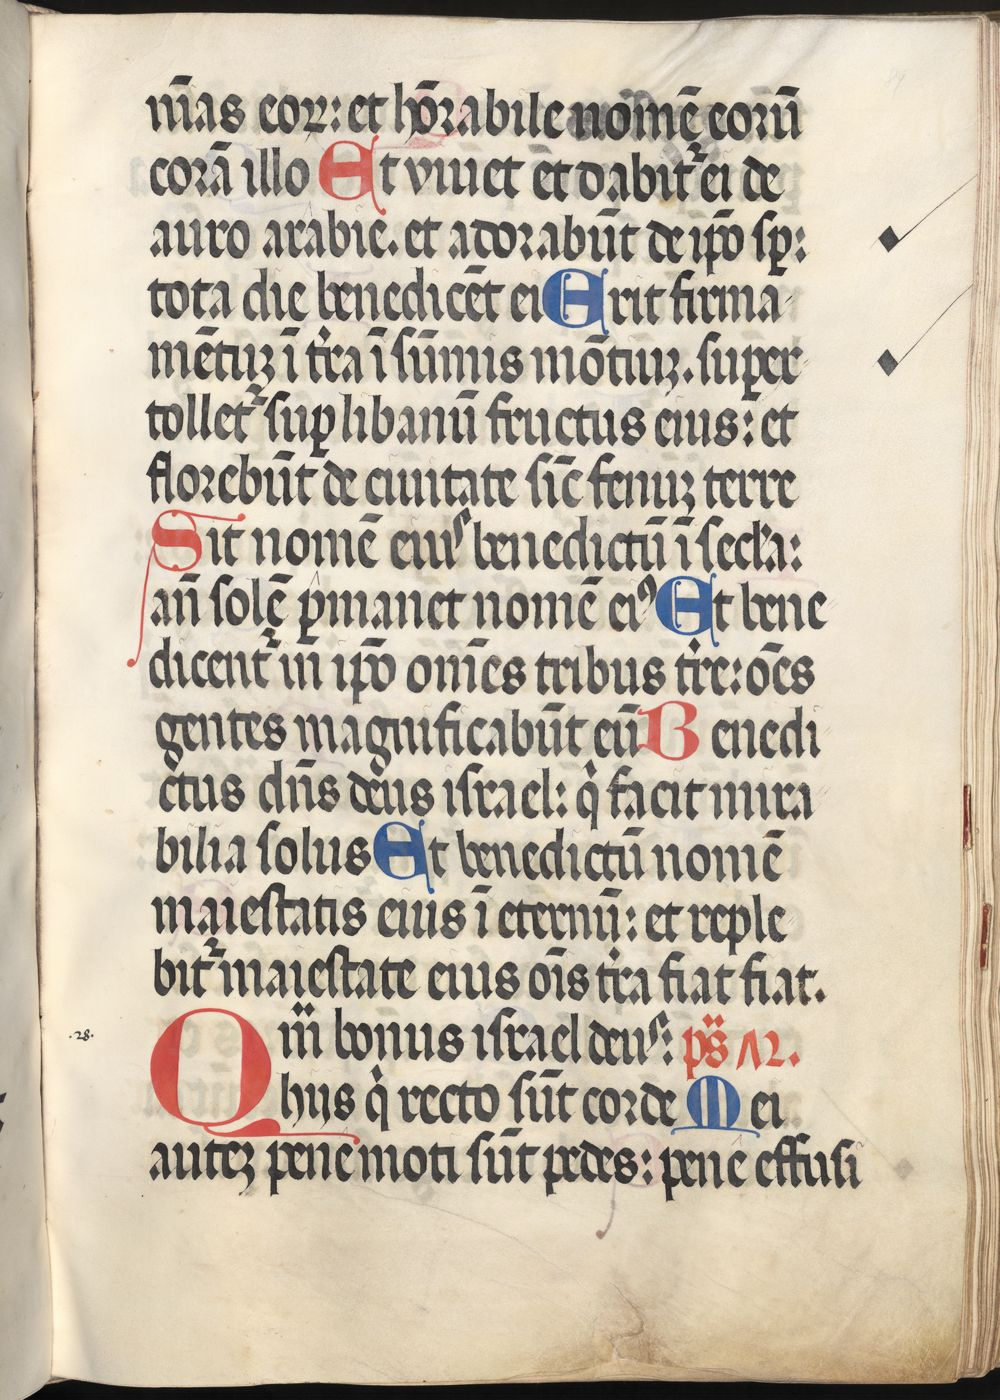 m̄as eoꝝ: et hōrabile nomē eorū
corā illo Et viuet et dabit᷑ ei de
auro arabie. et adorabūt de ip̄o sp̱:
tota die benedicēt ei Erit firma
mētuꝫ ī tr̄a ī sūmis mōtiuꝫ. super
tollet᷑ sup̱ libanū fructus eius: et
florebūt de ciuitate sic̄ fenuꝫ terre
Sit nomē eiꝰ benedictū ī secl̄a:
an̄ solē ꝑmanet nomē eiꝰ Et bene
dicent᷑ in ip̄o om̄es tribus tr̄e: ōēs
gentes magnificabūt eū Benedi
ctus dn̄s deus israel: qͥ facit mira
bilia solus Et benedictū nomē
maiestatis eius ī eternū: et reple
bit᷑ maiestate eius oīs tr̄a fiat fiat.
.28. Qm̄ bonus israel deꝰ: ps̄
hijs qͥ recto sūt corde Mei
auteꝫ pene moti sūt pedes: pene effusi